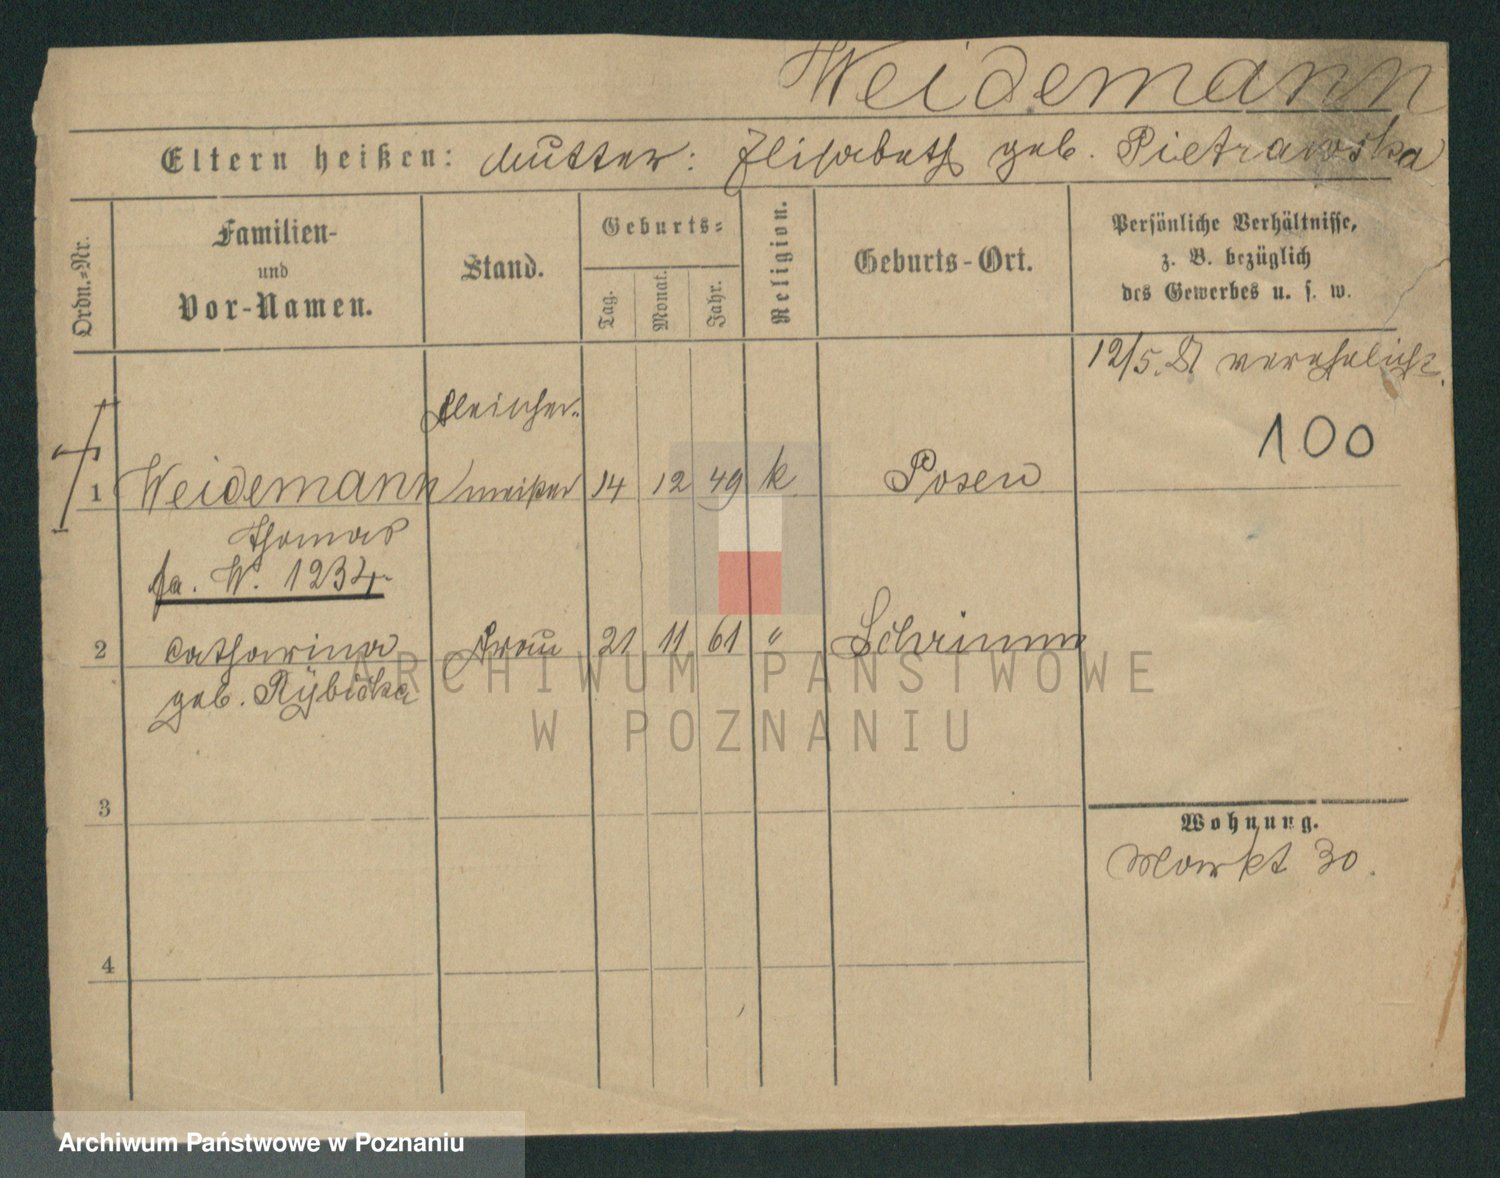 Weidemann
Eltern heißen: Mutter: Elisabeth geb. Pietrawska
Ordn.-Nr.
Familien-
und
Vor-Namen.
Stand.
Geburts-
Tag.
Monat.
Jahr.
Religion.
Geburts-Ort.
Persönliche Verhältnisse,
z. B. bezüglich
des Gewerbes u. s. w.
12/5. verehelicht.
100
Fleischer-
1 Weidemann meister 14 12 49 k Posen
Thomas
fa. W. 1234.
2 Catharina Frau 21 11 61 " Schrimm
geb. Rybicka
3
Wohnung.
Markt 30.
4
ARCHIWUM PAŃSTWOWE
W POZNANIU
Archiwum Państwowe w Poznaniu